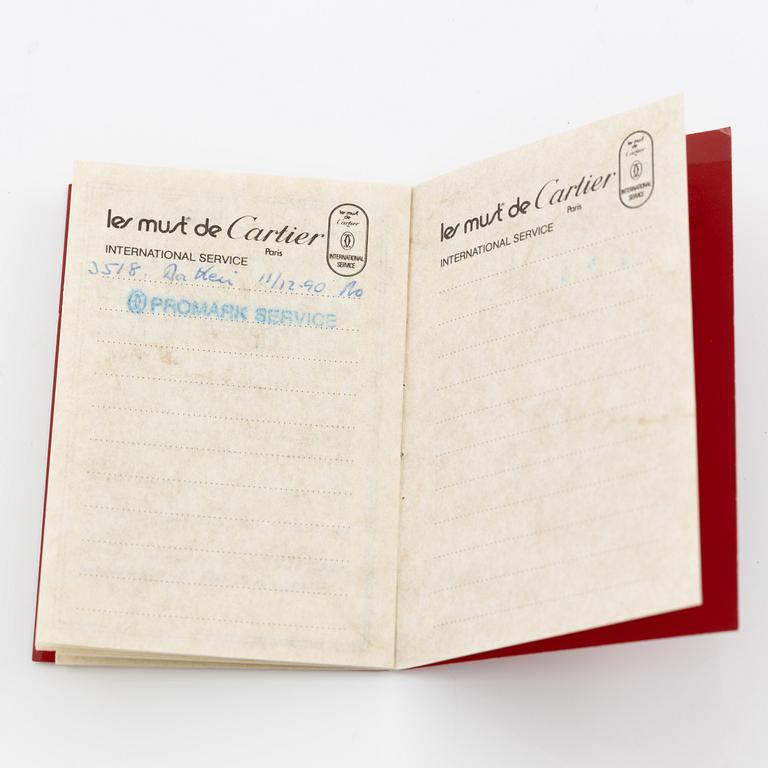 les must de Cartier
Paris
INTERNATIONAL SERVICE
les must
de
Cartier
INTERNATIONAL
SERVICE
11/12-90
PROMARK SERVICE
les must de Cartier
Paris
INTERNATIONAL SERVICE
les must
de
Cartier
INTERNATIONAL
SERVICE